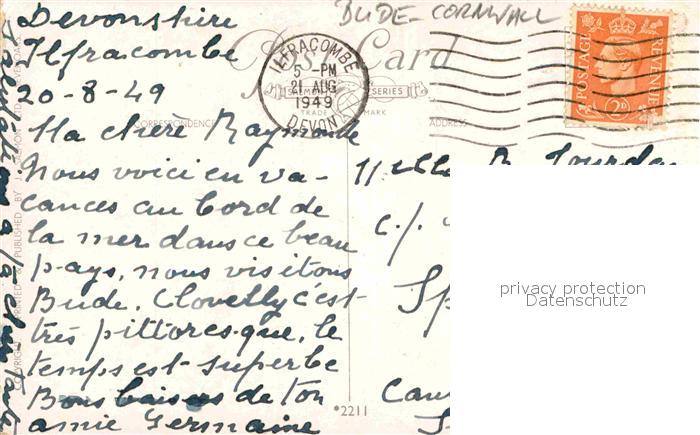 BUDE - CORNWALL
Devonshire
Ilfracombe
20-8-49
Post Card
ILFRACOMBE
5 - PM
21 AUG
1949
DEVON
SALMON SERIES
TRADE MARK
POSTAGE REVENUE
2D
CORRESPONDENCE
ADDRESS
Ma chere Raymonde
Nous voici en va-
cances au bord de
la mer dans ce beau
pays, nous visitons
Bude, Clovelly c'est
très pittoresque, le
temps est superbe
Bons baisers de ton
amie Germaine
Melle R.
c/.
Sp
*2211
COPYRIGHT PRINTED & PUBLISHED BY J. SALMON LTD SEVENOAKS
privacy protection
Datenschutz